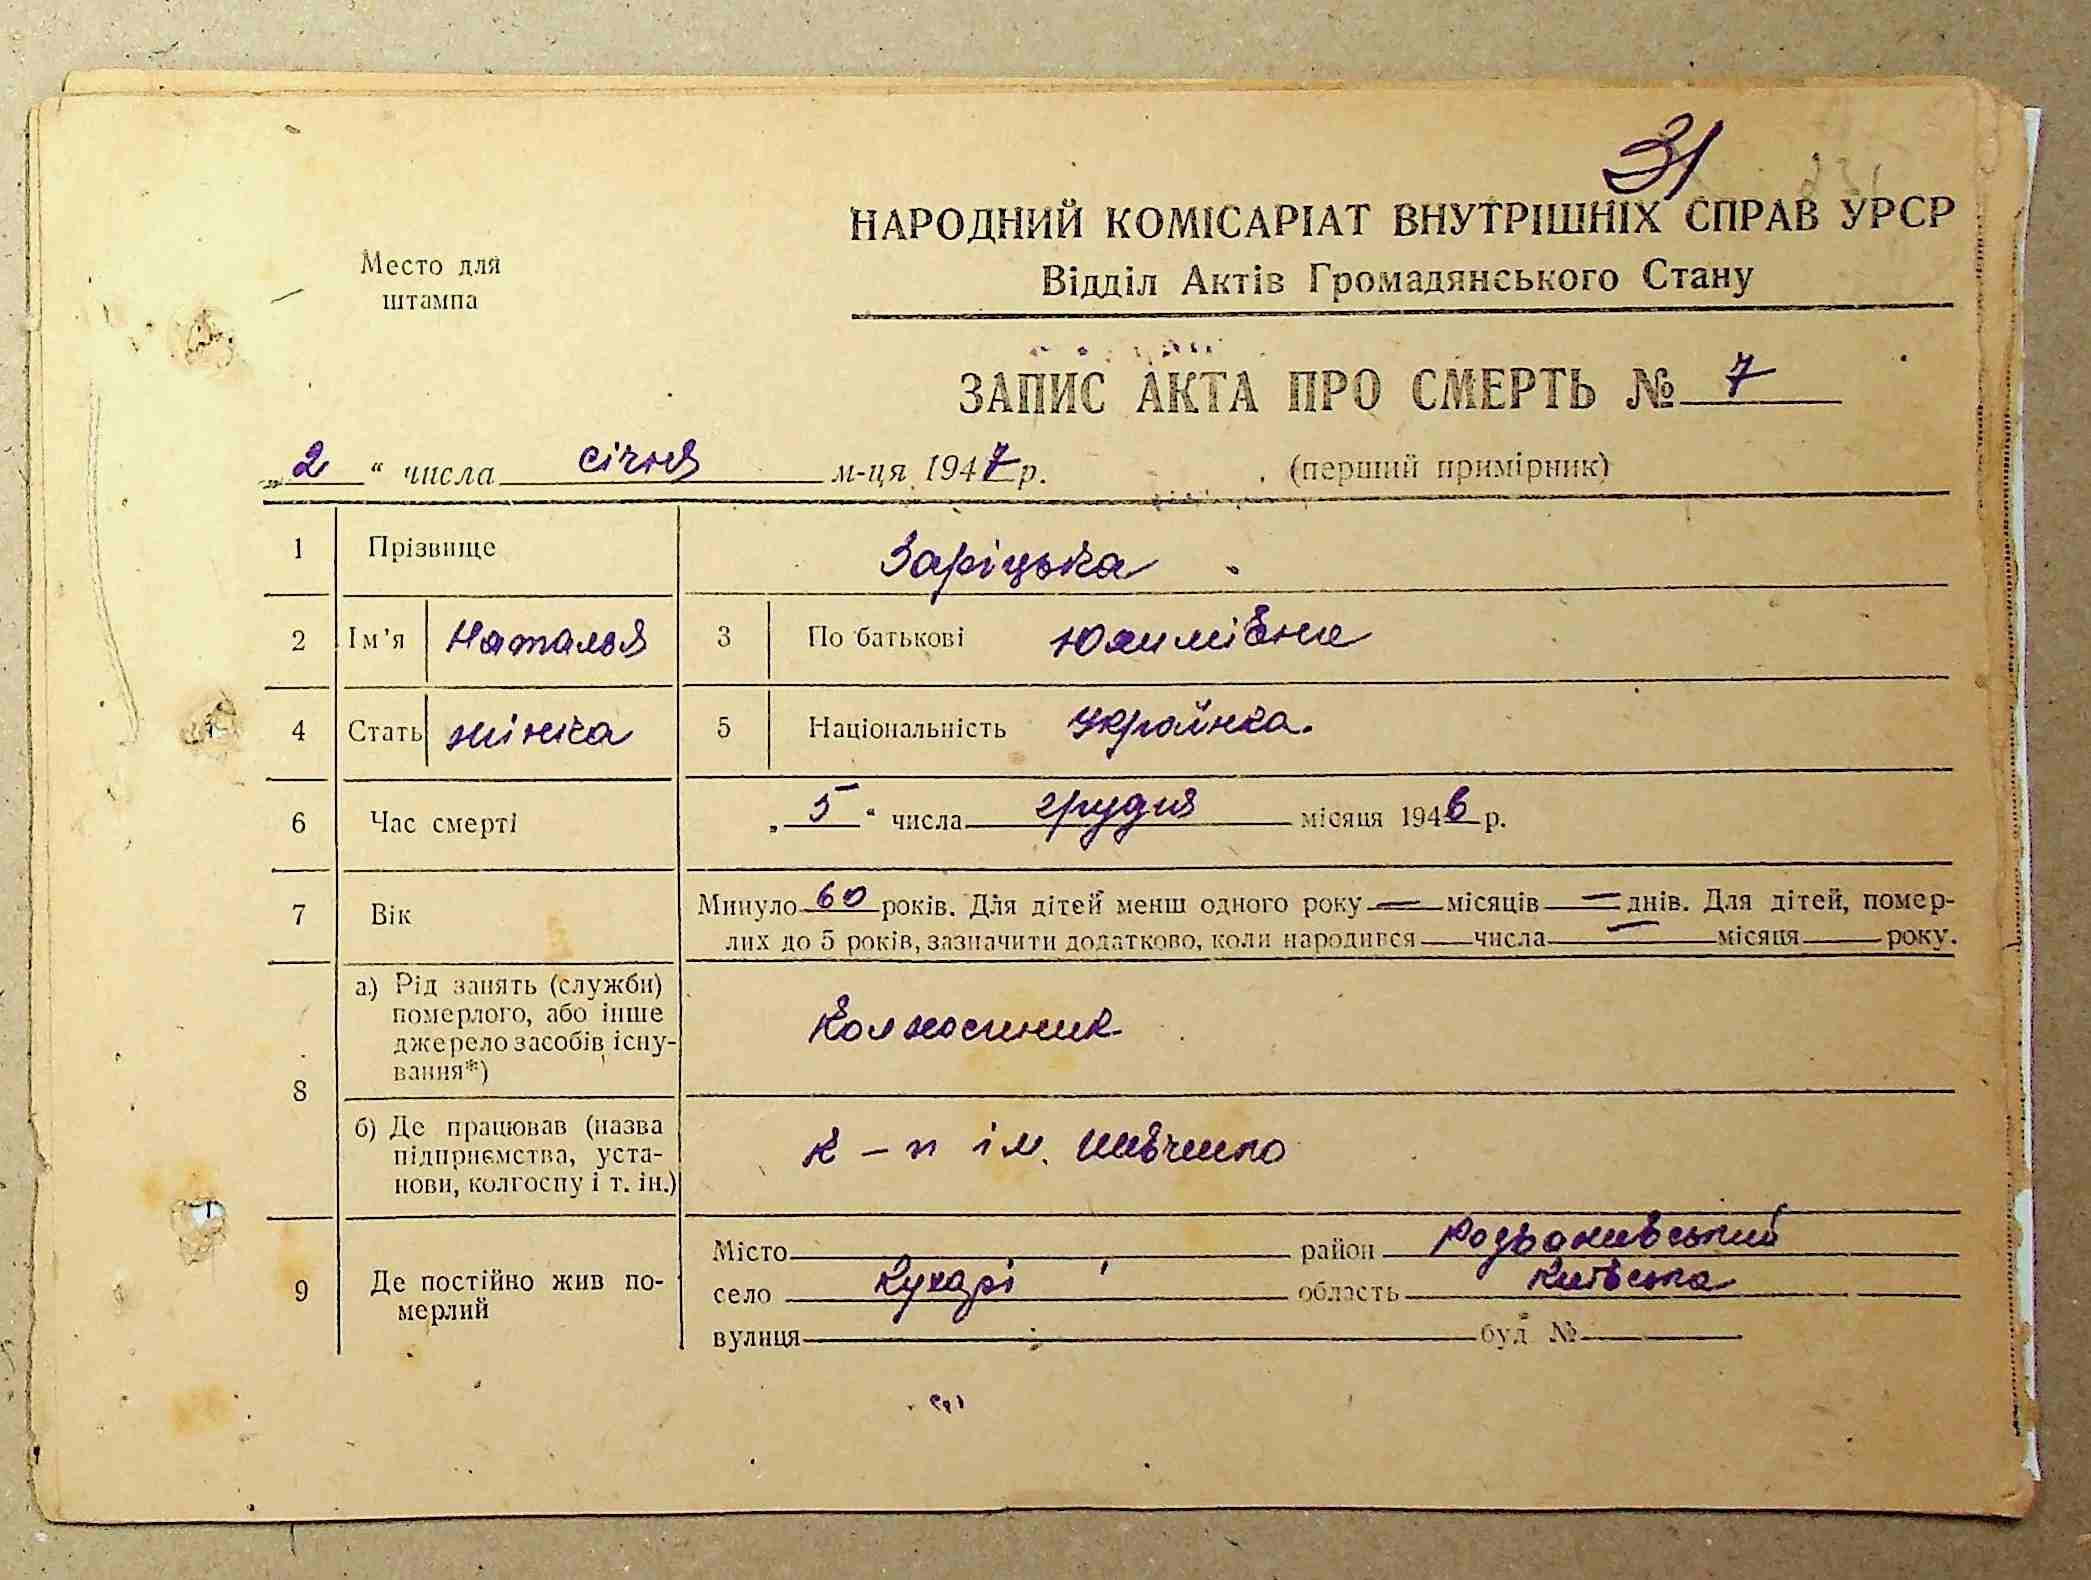 31
НАРОДНИЙ КОМІСАРІАТ ВНУТРІШНІХ СПРАВ УРСР
Место для
штампа
Відділ Актів Громадянського Стану
ЗАПИС АКТА ПРО СМЕРТЬ № 7
„2“ числа січня м-ця 1947 р. (перший примірник)
1 Прізвище Заріцька
2 Ім’я Наталья 3 По батькові Юхимівна
4 Стать жінка 5 Національність Українка.
6 Час смерті „5“ числа грудня місяця 1946 р.
7 Вік Минуло 60 років. Для дітей менш одного року — місяців — днів. Для дітей, помер-
лих до 5 років, зазначити додатково, коли народився — числа — місяця — року.
8 а) Рід занять (служби)
померлого, або інше
джерело засобів існу-
вання*)
Колхосник
б) Де працював (назва
підприємства, уста-
нови, колгоспу і т. ін.)
к-п ім. Шевченко
9 Де постійно жив по-
мерлий
Місто район Розважівський
село Кухарі область Київська
вулиця буд №